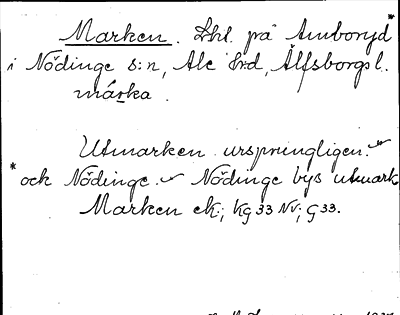 Marken. Lht. på Amboryd*
i Nödinge s:n, Ale hrd, Älfsborgs l.
márka.
Utmarken ursprungligen.
* och Nödinge. Nödinge bys utmark
Marken ek.; Kg 33 NV; G 33.